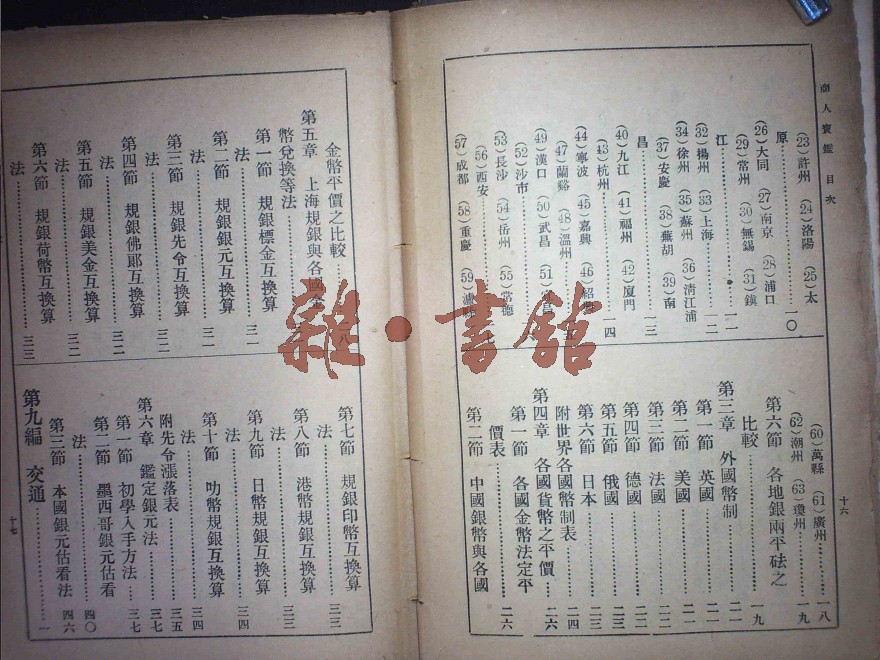 商人寶鑑 目次
十六
(23)許州 (24)洛陽 (25)太
原……一〇
(26)大同 (27)南京 (28)浦口
(29)常州 (30)無錫 (31)鎮
江……一一
(32)揚州 (33)上海……一二
(34)徐州 (35)蘇州 (36)清江浦
(37)安慶 (38)蕪胡 (39)南
昌……一三
(40)九江 (41)福州 (42)廈門
(43)杭州……一四
(44)寧波 (45)嘉興 (46)紹
(47)蘭谿 (48)溫州
(49)漢口 (50)武昌 (51)
(52)沙市
(53)長沙 (54)岳州 (55)常德
(56)西安
(57)成都 (58)重慶 (59)
(60)萬縣 (61)廣州……一八
(62)潮州 (63)瓊州……一九
第六節 各地銀兩平砝之
比較……一九
第三章 外國幣制……二一
第一節 英國……二一
第二節 美國……二一
第三節 法國……二二
第四節 德國……二二
第五節 俄國……二三
第六節 日本……二三
附世界各國幣制表……二四
第四章 各國貨幣之平價……二六
第一節 各國金幣法定平
價表……二六
第二節 中國銀幣與各國
金幣平價之比較……八
第五章 上海規銀與各國金
幣兌換等法
第一節 規銀標金互換算
法……三一
第二節 規銀銀元互換算
法……三一
第三節 規銀先令互換算
法……三一
第四節 規銀佛郎互換算
法……三二
第五節 規銀美金互換算
法……三二
第六節 規銀荷幣互換算
法……三三
第七節 規銀印幣互換算
法……三三
第八節 港幣規銀互換算
法……三三
第九節 日幣規銀互換算
法……三四
第十節 叻幣規銀互換算
法……三四
附先令漲落表……三五
第六章 鑑定銀元法……三七
第一節 初學入手方法……三七
第二節 墨西哥銀元估看
法……四〇
第三節 本國銀元估看法……四六
第九編 交通……一
十七
雜·書館